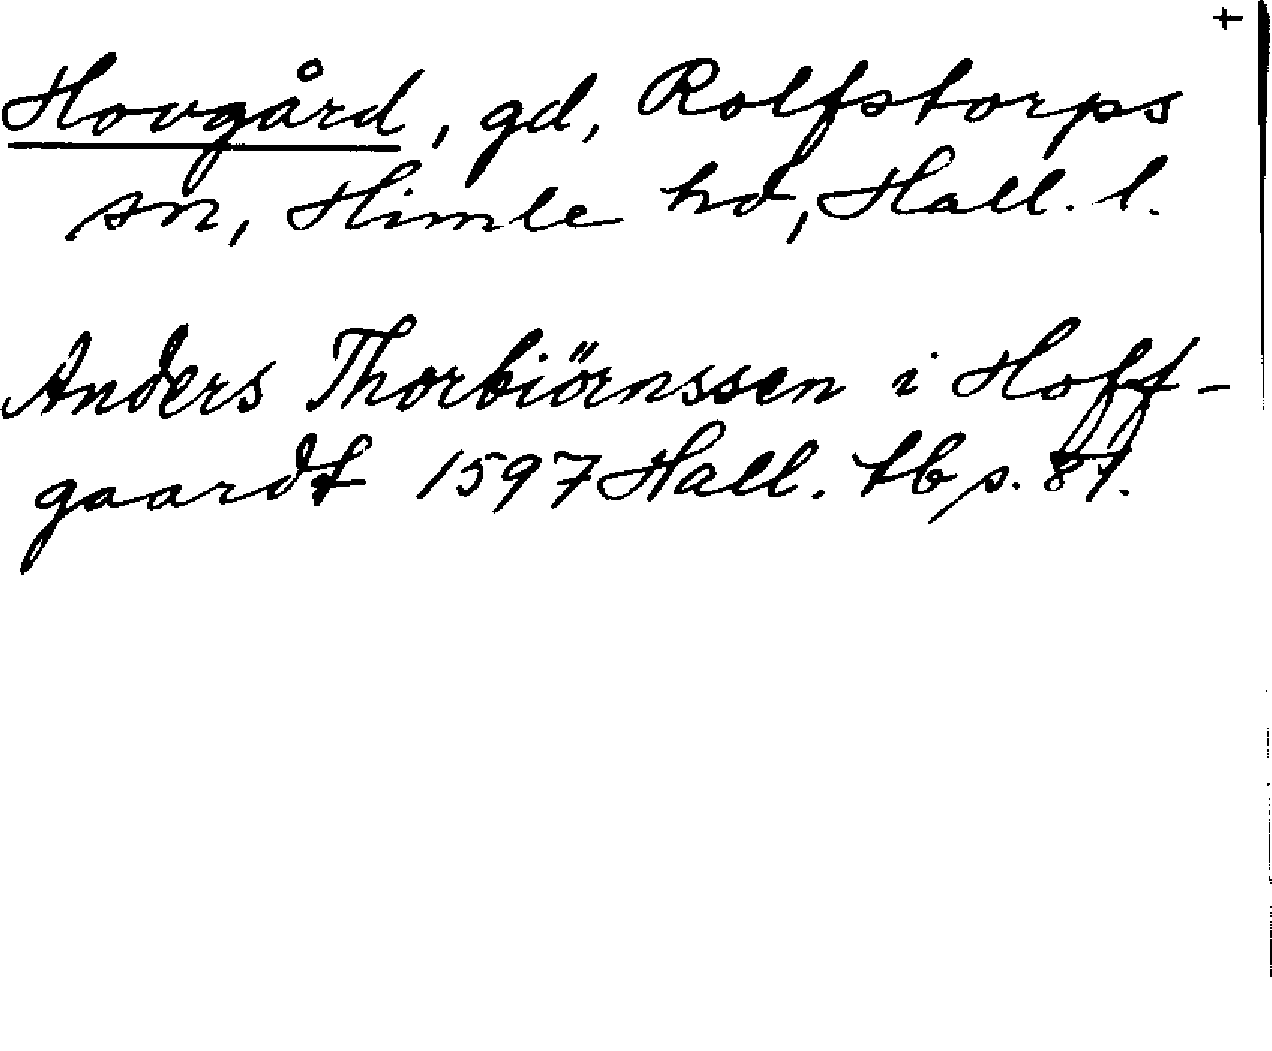 +
Hovgård, gd, Rolfstorps
sn, Himle hd, Hall. l.
Anders Thorbiörnssen i Hoff-
gaardt 1597 Hall. tb s. 87.